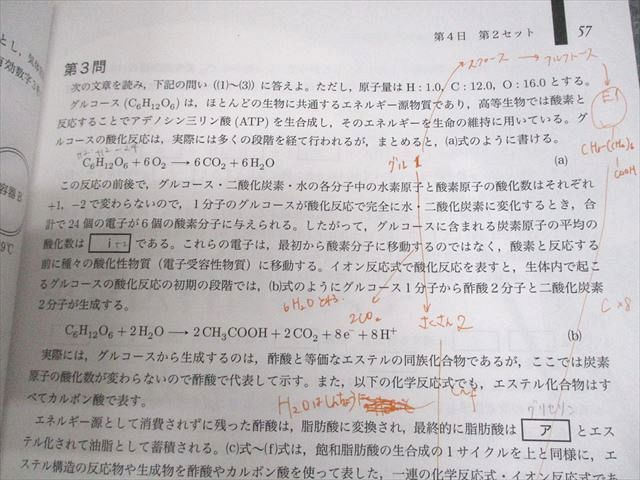 第4日 第2セット 57
スクロース → フルクトース
とし，気体
有効数字3
第3問
次の文章を読み，下記の問い（(1)～(3)）に答えよ。ただし，原子量はH：1.0，C：12.0，O：16.0とする。
グルコース（C₆H₁₂O₆）は，ほとんどの生物に共通するエネルギー源物質であり，高等生物では酸素と
反応することでアデノシン三リン酸（ATP）を生合成し，そのエネルギーを生命の維持に用いている。グ
ルコースの酸化反応は，実際には多くの段階を経て行われるが，まとめると，(a)式のように書ける。
C₆H₁₂O₆＋6O₂ ⟶ 6CO₂＋6H₂O (a)
グル1
COOH
この反応の前後で，グルコース・二酸化炭素・水の各分子中の水素原子と酸素原子の酸化数はそれぞれ
+1，−2で変わらないので，1分子のグルコースが酸化反応で完全に水・二酸化炭素に変化するとき，合
計で24個の電子が6個の酸素分子に与えられる。したがって，グルコースに含まれる炭素原子の平均の
酸化数は i である。これらの電子は，最初から酸素分子に移動するのではなく，酸素と反応する
前に種々の酸化性物質（電子受容性物質）に移動する。イオン反応式で酸化反応を表すと，生体内で起こ
るグルコースの酸化反応の初期の段階では，(b)式のようにグルコース1分子から酢酸2分子と二酸化炭素
2分子が生成する。
2CO₂
さくさん2
C×8
C₆H₁₂O₆＋2H₂O ⟶ 2CH₃COOH＋2CO₂＋8e⁻＋8H⁺ (b)
実際には，グルコースから生成するのは，酢酸と等価なエステルの同族化合物であるが，ここでは炭素
原子の酸化数が変わらないので酢酸で代表して示す。また，以下の化学反応式でも，エステル化合物はす
べてカルボン酸で表す。
グリセリン
エネルギー源として消費されずに残った酢酸は，脂肪酸に変換され，最終的に脂肪酸は ア とエス
テル化されて油脂として蓄積される。(c)式～(f)式は，飽和脂肪酸の生合成の1サイクルを上と同様に，エ
ステル構造の反応物や生成物を酢酸やカルボン酸を使って表した，一連の化学反応式・イオン反応式であ
容器B
9℃